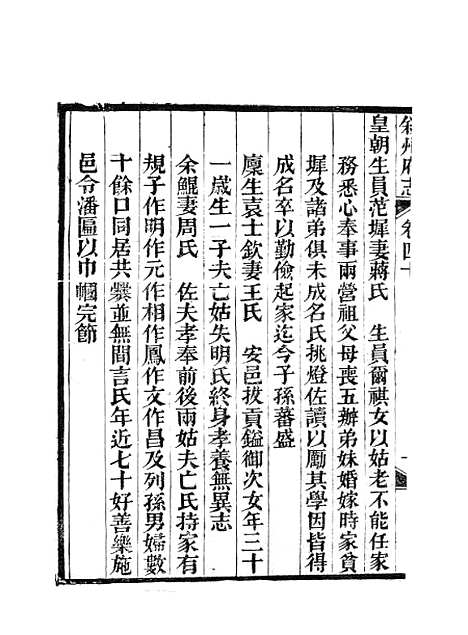 叙州府志 卷四十
皇朝生員范墀妻蔣氏　生員爾祺女以姑老不能任家
務悉心奉事兩營祖父母喪五辦弟妹婚嫁時家貧
墀及諸弟俱未成名氏挑燈佐讀以勵其學因皆得
成名卒以勤儉起家迄今子孫蕃盛
廩生袁士欽妻王氏　安邑拔貢鎰御次女年三十
一歲生一子夫亡姑失明氏終身孝養無異志
余鯤妻周氏　佐夫孝奉前後兩姑夫亡氏持家有
規子作明作元作相作鳳作文作昌及列孫男婦數
十餘口同居共爨並無間言氏年近七十好善樂施
邑令潘匾以巾幗完節